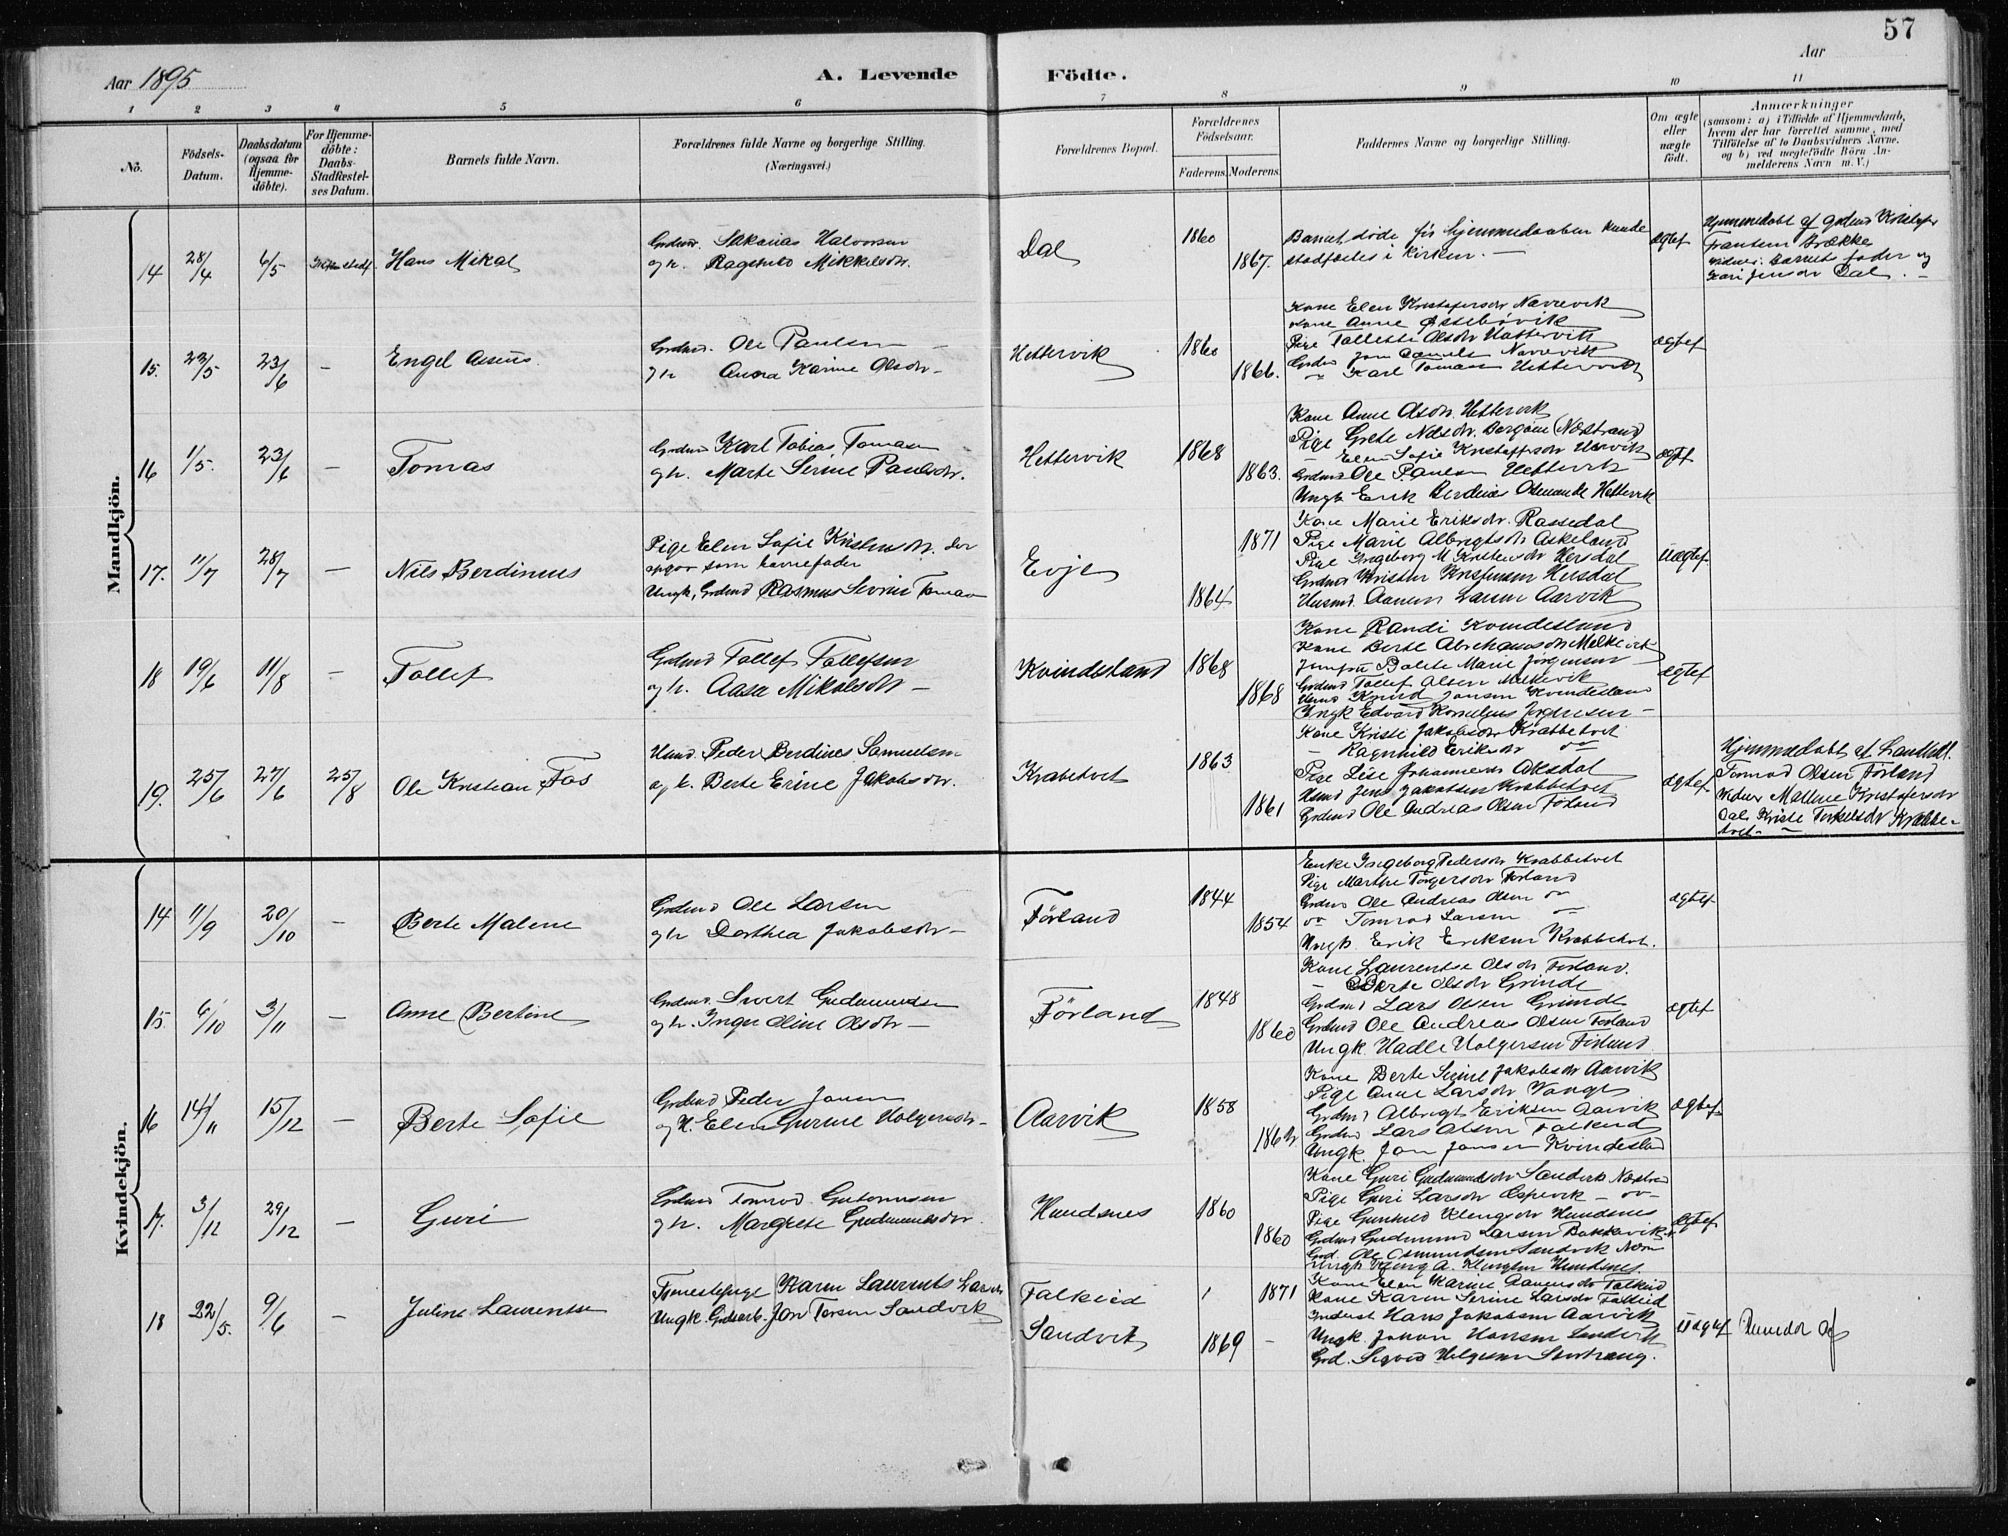 57
Aar 1895
A. Levende Födte.
Aar
1 2 3 4 5 6 7 8 9 10 11
No.
Födsels-Datum.
Daabsdatum (ogsaa for Hjemme-döbte).
For Hjemme-döbte: Daabs-Stadfæstel-ses Datum.
Barnets fulde Navn.
Forældrenes fulde Navne og borgerlige Stilling. (Næringsvei.)
Forældrenes Bopæl.
Forældrenes Födselsaar.
Faderens. Moderens.
Faddernes Navne og borgerlige Stilling.
Om ægte eller uægte födt.
Anmærkninger
(saasom: a) i Tilfælde af Hjemmedaab, hvem der har forrettet samme, med Tilföielse af to Daabsvidners Navne, og b) ved uægtefödte Börn An-melderens Navn m. V.)
Mandkjön.
14 28/4 6/5 Hans Mikal
Grdmd. Sakarias Halvorsen
og h. Ragnhild Mikkelsdr.
Dal 1860 1867.
Barnet døde før hjemmedaaben kunde
stadfæstes i Kirken. —
ægtef
Hjemmedøbt af grdmd
Vidner: Barnets fader og
Kari Jensdr Dal. —
15. 23/5 23/6 — Engel Asseus
Grdmd. Ole Paulsen —
og h Anna Karine Olsdr.
Hettervik 1860 1866.
Kone Elen Kristofersdr Nævrevik
Kone Anne
Pige Olsdr Hettervik
Grdmd Nævrevik
— Karl Tomasen Hettervik
ægtef
16 1/5. 23/6 — Tomas
Grdmd Karl Tobias Tomasen
og h. Marte Serine Paulsdr.
Hettervik 1868 1863.
Kone Anne Olsdr. Hettervik
Pige Grete Nilsdr. (Næstrand)
— Elen Sofie
Grdmd Ole Paulsen Hettervik
Ungk Erik Berdines Hettervik
ægtef
17. 11/7 28/7 — Nils Berdineus
Pige Elen Sofie Kristensdr. der
opgor som barnefader
Ungk. Grdmd Rasmus Sivrin Tomasen
Evje 1871 1864
Kone Marie Eriksdr. Rassedal
Pige Marie Albrigtsdr Askeland
Pige Ingeborg M Kristensdr Hersdal
Grdmd Kristen Kristensen Hersdal
Husmd. Aanen Larsen Aarvik
Uægtef
18 19/6 11/8 — Tollef
Grdmd Tollef Tollefsen
og h. Aasa Mikalsdr —
Kvindesland 1868 1868
Kone Randi Kvindesland
Kone Berte Abrahamsdr Melkevik
Jomfru Bolete Marie Jørgensen
Grdmd Tollef Olsen Melkevik
Husmd Knud Jansen Kvindesland
Ungk Edvard Kornelius Jørgensen —
ægtef
19. 25/6 27/6 25/8 Ole Kristian Fos
Husmd Peder Berdines Samuelsen
og h. Berte Erine Jakobsdr.
Krabetvet 1863 1861
Kone Kristi Jakobsdr Krabbetvet
— Ragnhild Eriksdr
Pige Lise Johannesdr Aksdal
Husmd Jens Jakobsen Krabbetvet
Grdmd Ole Andreas Olsen Førland
ægtef
Hjemmedøbt af
Tomod Olsen Førland
Vidner Malene Kristofersdr
Dal, Kristi Torkelsdr Krabbe-
tvet —
Kvindekjön.
14 11/9 20/10 — Berte Malene
Grdmd Ole Larsen
og h Dorthea Jakobsdr —
Førland 1844 1854
Enke Ingeborg Pedersdr Krabbetvet
Pige Marthe Torgersdr Førland
Grdmd Ole Andreas Olsen
Tomod Larsen
Ungk. Erik Eriksen Krabbetvet.
ægtef
15. 6/10 3/11 Anne Bertine
Grdmd. Sivert Gudmundsen
og h. Inger Oline Olsdr —
Førland 1848 1860
Kone Laurentse Olsdr Førland.
— Berte Olsdr Grinde
Grdmd Lars Olsen Grinde
Grdmd Ole Andreas Olsen Førland
Ungk. Hadle Holgersen Førland
ægtef
16 14/11 15/12 — Berte Sofie
Grdmd Peder Jansen
og H. Elen Gurine Holgersdr —
Aarvik 1858
Kone Berte Serine Jakobsdr Aarvik
Pige Anne Larsdr Vange
Grdmd Albrigt Eriksen Aarvik
Grdmd Lars Olsen Falkeid
Ungk. Jan Jansen Kvindesland
ægtef
17. 3/12 29/12 — Guri
Grdmd Tomod Guttormsen
og h. Margrete Gudmundsdr.
Hundsnes 1860 1860
Kone Guri Gudmundsdr Sandvik Næstrand
Pige Guri Larsdr Espevik
Pige Gunhild Klengsdr Hundsnes
Grdmd Gudmund Larsen Bakkevik
Grd. Ole Osmundsen Sandvik
Ungk Kleng A. Klengsen Hundsnes.
ægtef
18 22/5. 9/6 — Juline Laurentse
Tjenestepige Karen Laurents Larsdr
Ungk. Grdarb. Jon Torsen Sandvik
Falkeid
Sandvik 1871 1869 —
Kone Elen Karine Aanensdr Falkeid
Kone Karen Serine Larsdr Falkeid
Inderst Hans Jakobsen Aarvik
Ungk. Johan Hansen Sandvik
Grd. Sigvad Helgesen
Uægtef